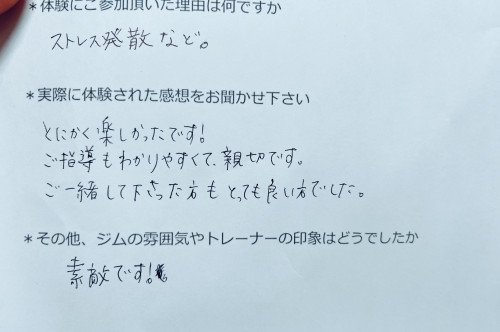 *体験にご参加頂いた理由は何ですか
ストレス発散など。
*実際に体験された感想をお聞かせ下さい
とにかく楽しかったです!
ご指導もわかりやすくて、親切です。
ご一緒して下さった方もとっても良い方でした。
*その他、ジムの雰囲気やトレーナーの印象はどうでしたか
素敵です!